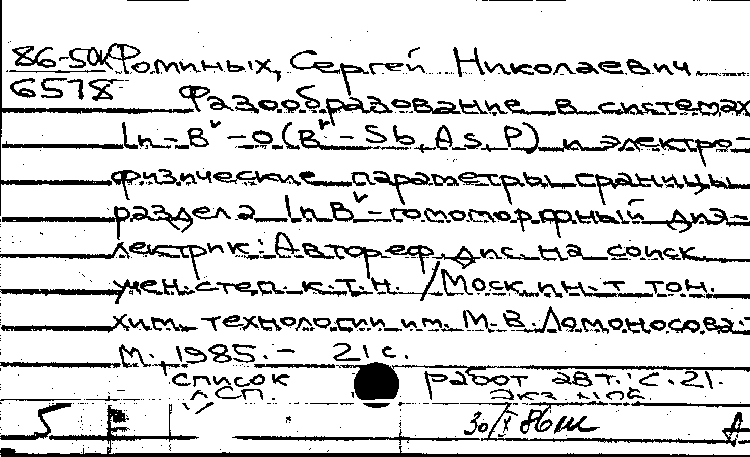 86-50к Фоминых, Сергей Николаевич
6578
Фазообразование в системах
In-Bⱽ-O (Bⱽ-Sb, As, P) и электро-
физические параметры границы
раздела InBⱽ-гомоморфный диэ-
лектрик: Автореф. дис. на соиск.
учен. степ. к.т.н. / Моск ин-т тон.
хим. технологии им. М.В. Ломоносова.-
М., 1985.- 21 с.
список работ 28 т.: С. 21.
ДСП. экз №06
30/X 86